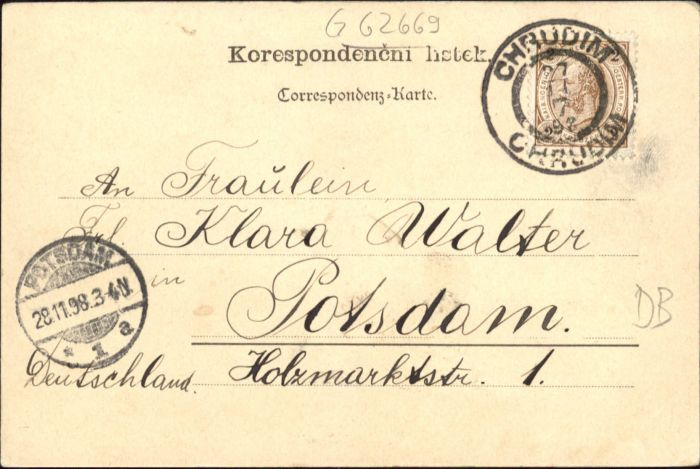 G 62669
Korespondenční lístek.
Correspondenz-Karte.
CHRUDIM
CHRUDIM
An Fräulein
Frl. Klara Walter
in
Potsdam.
Holzmarktstr. 1.
Deutschland.
POTSDAM
28.11.98.3-4N.
* 1 a
DB